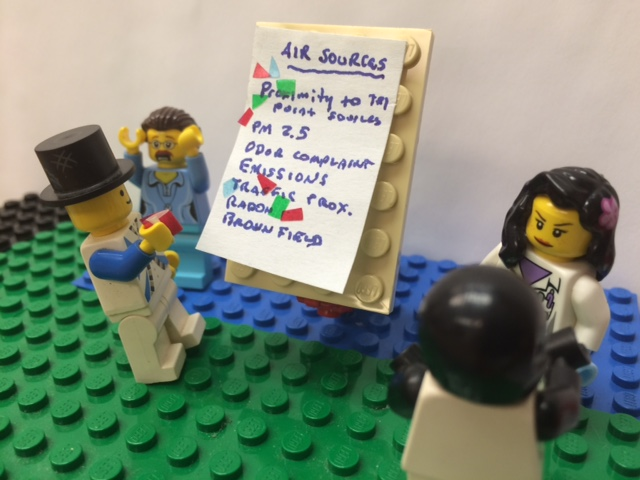 AIR SOURCES
Proximity to TRI
POINT SOURCES
PM 2.5
ODOR COMPLAINT
EMISSIONS
TRAFFIC PROX.
RADON
BROWN FIELD